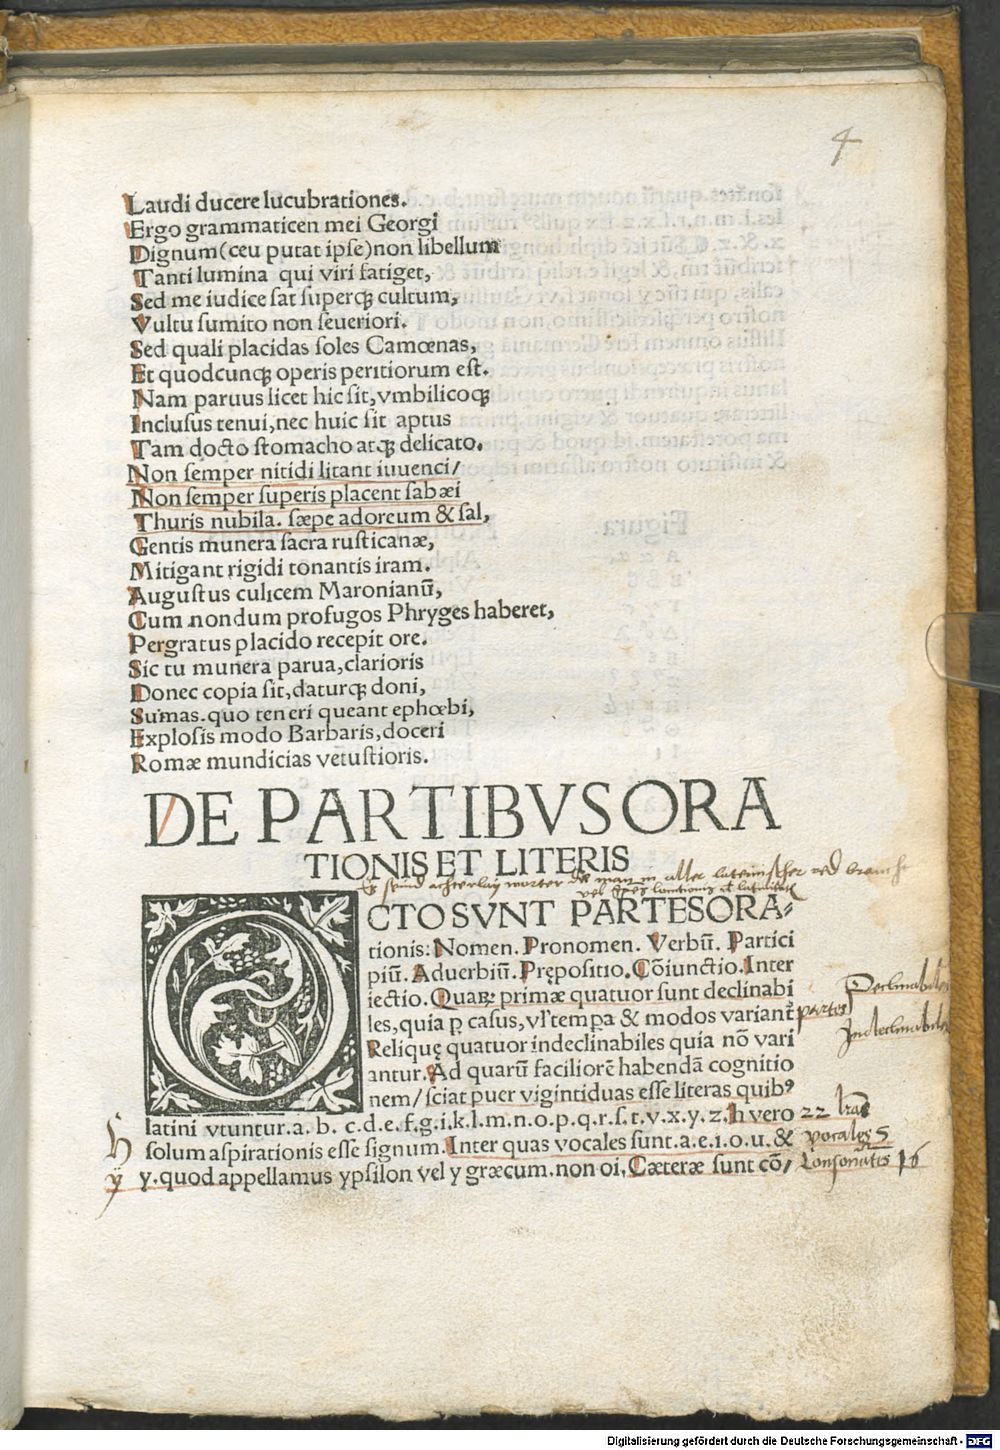 4
Laudi ducere lucubrationes.
Ergo grammaticen mei Georgi
Dignum(ceu putat ipse)non libellum
Tanti lumina qui viri fatiget,
Sed me iudice sat superqꝫ cultum,
Vultu sumito non seueriori.
Sed quali placidas soles Camœnas,
Et quodcunqꝫ operis peritiorum est.
Nam paruus licet hic sit,vmbilicoqꝫ
Inclusus tenui,nec huic sit aptus
Tam docto stomacho atqꝫ delicato.
Non semper nitidi litant iuuenci/
Non semper superis placent sabæi
Thuris nubila. sæpe adoreum & sal,
Gentis munera sacra rusticanæ,
Mitigant rigidi tonantis iram.
Augustus culicem Maronianū,
Cum nondum profugos Phryges haberet,
Pergratus placido recepit ore.
Sic tu munera parua,clarioris
Donec copia sit,daturqꝫ doni,
Sumas.quo teneri queant ephœbi,
Explosis modo Barbaris,doceri
Romæ mundicias vetustioris.
DE PARTIBVS ORA
TIONIS ET LITERIS
Es seind achterlay worter man in aller lateinischer red
OCTO SVNT PARTES ORA-
tionis: Nomen. Pronomen. Verbū. Partici
piū. Aduerbiū. Prępositio. Cōiunctio. Inter
iectio. Quaꝝ primæ quatuor sunt declinabi
les,quia ꝑ casus,vl' tempa & modos variant᷑
Reliquę quatuor indeclinabiles quia nō vari
antur. Ad quarū faciliorē habendā cognitio
nem/ sciat puer vigintiduas esse literas quibꝰ
latini vtuntur.a. b. c.d.e.f.g.i.k.l.m.n.o.p.q.r.s.t.v.x.y.z. h vero
solum aspirationis esse signum. Inter quas vocales sunt.a.e.i.o.u. &
y. quod appellamus ypsilon vel y græcum. non oi. Cæteræ sunt cō/
partes
Declinabiles
Indeclinabiles
22 lrae
vocales 5
Consonantes 16
h
y
Digitalisierung gefördert durch die Deutsche Forschungsgemeinschaft - DFG